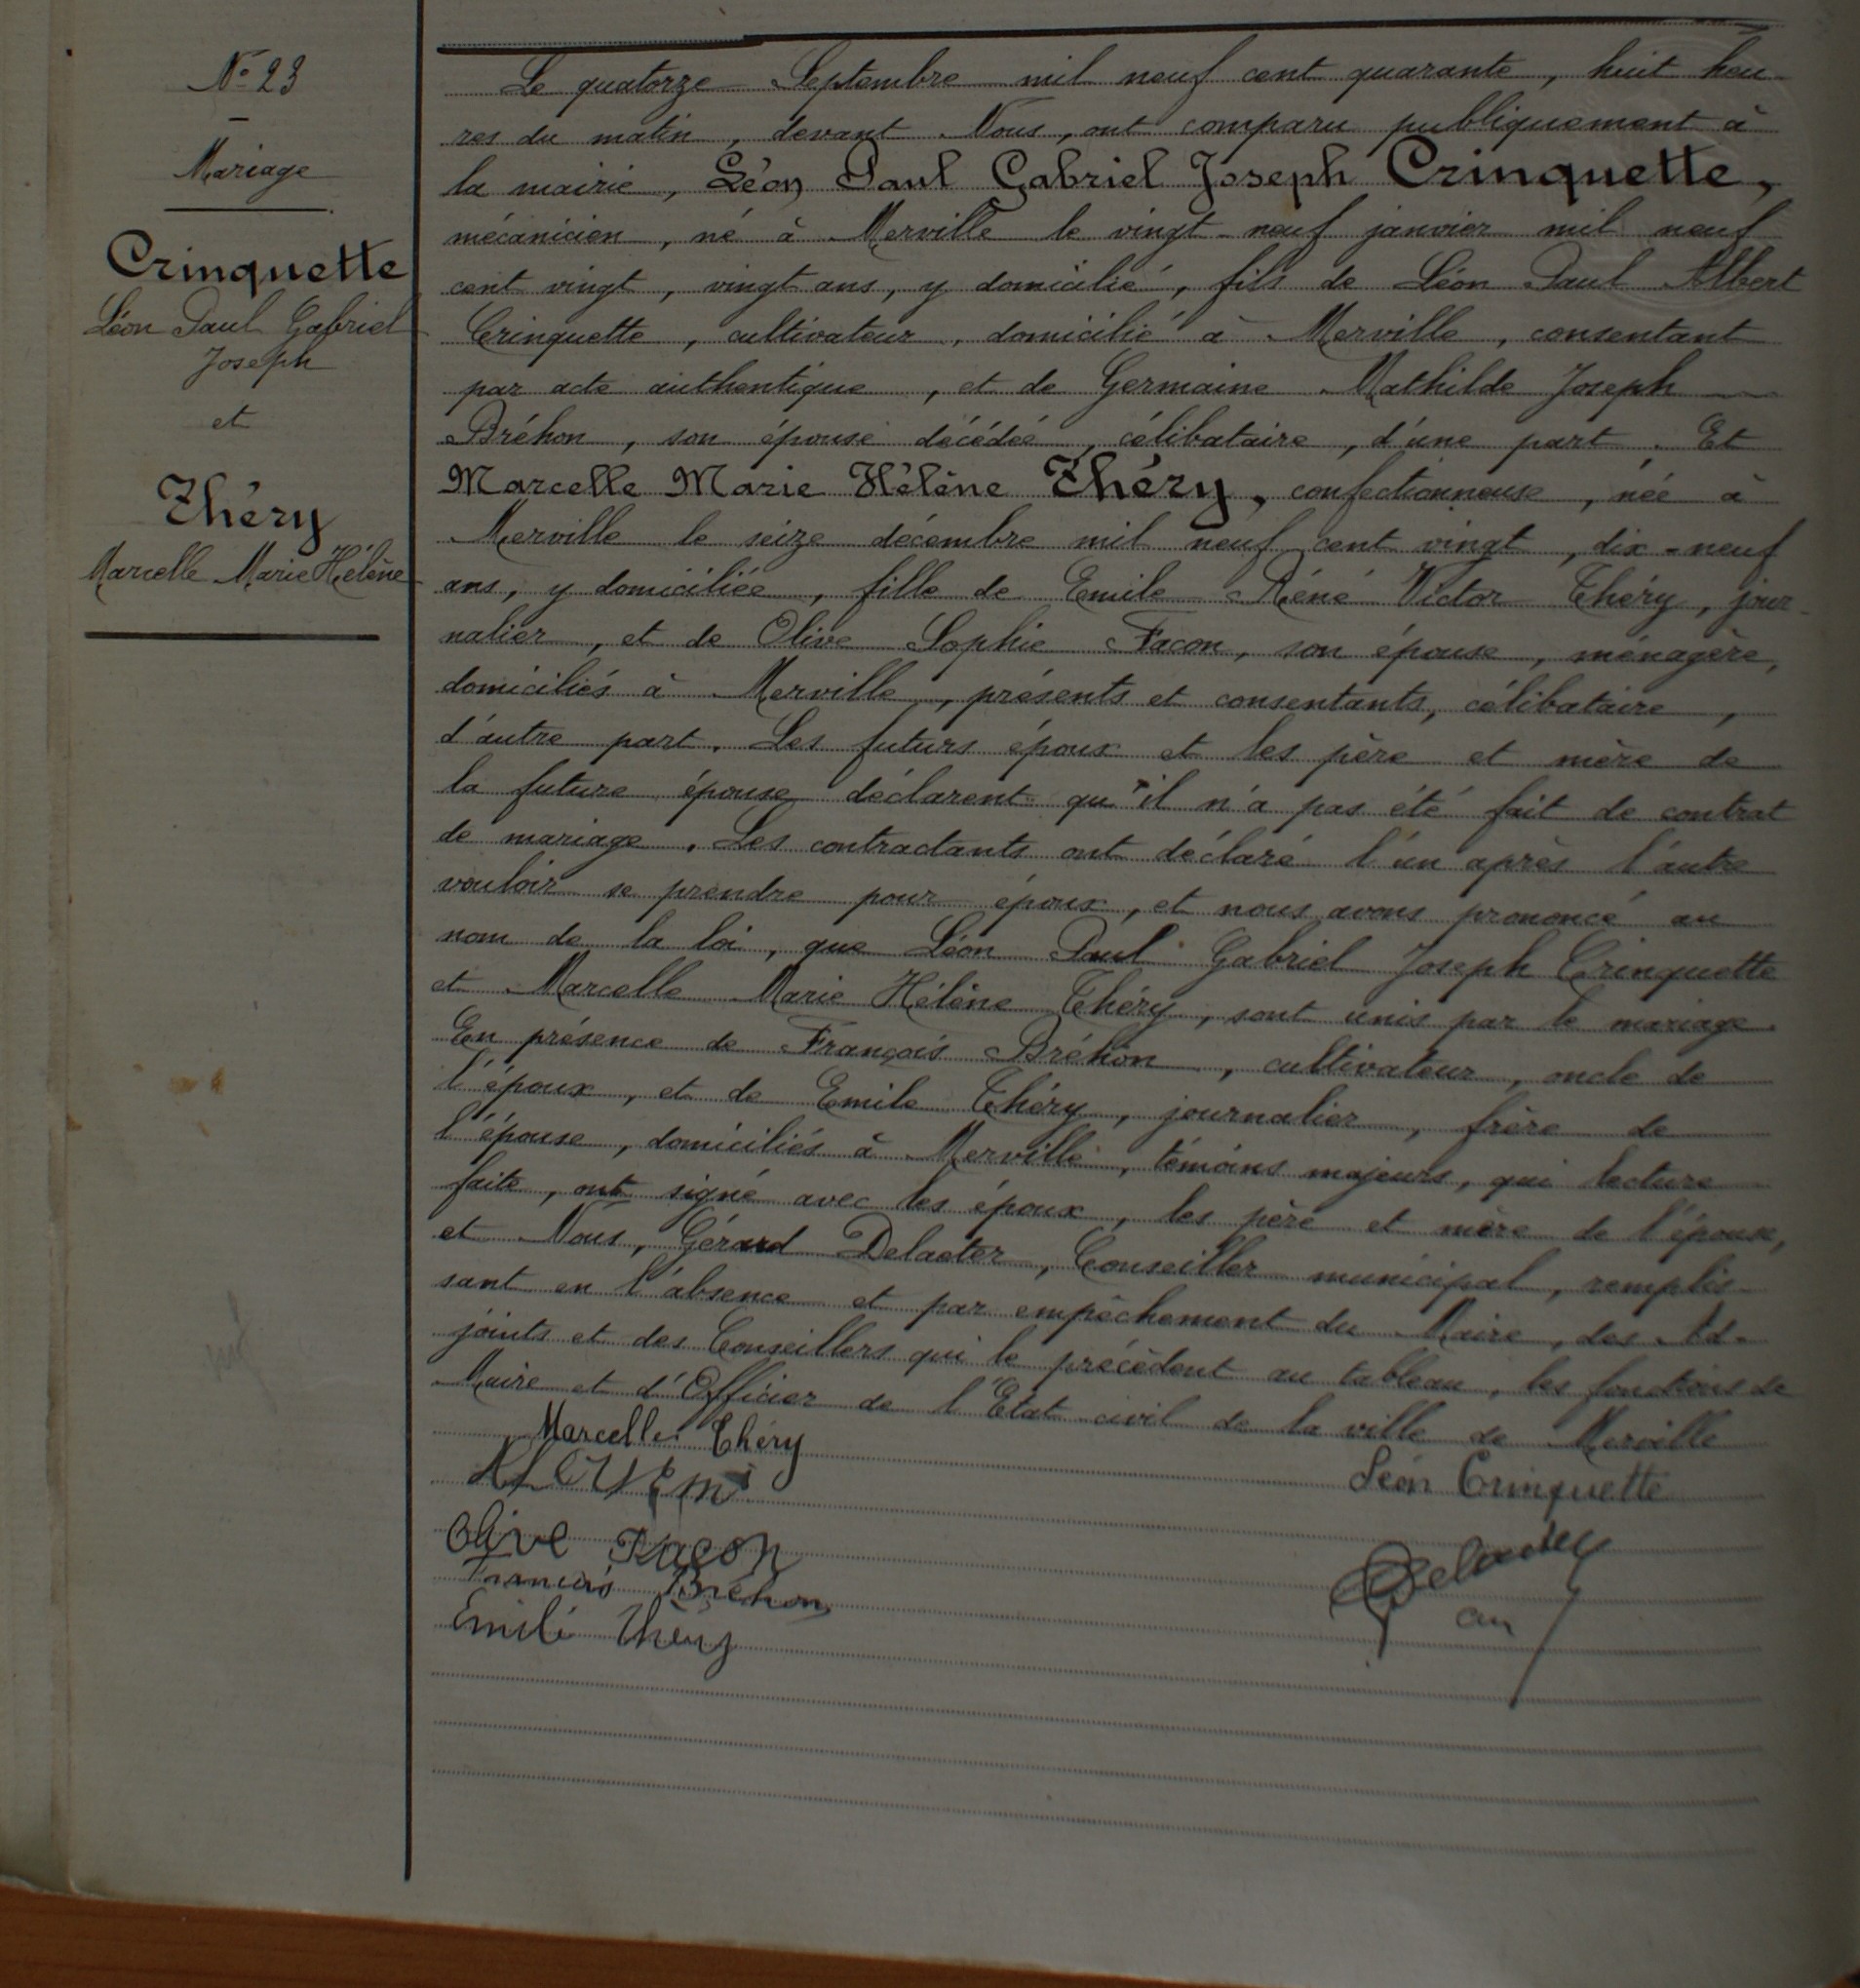 N° 23
Mariage
Crinquette
Léon Paul Gabriel
Joseph
et
Théry
Marcelle Marie Hélène
Le quatorze Septembre mil neuf cent quarante, huit heu-
res du matin, devant Nous, ont comparu publiquement à
la mairie, Léon Paul Gabriel Joseph Crinquette,
mécanicien, né à Merville le vingt-neuf janvier mil neuf
cent vingt, vingt ans, y domicilié, fils de Léon Paul Albert
Crinquette, cultivateur, domicilié à Merville, consentant
par acte authentique, et de Germaine Mathilde Joseph
Bréhon, son épouse décédée, célibataire, d'une part. Et
Marcelle Marie Hélène Théry, confectionneuse, née à
Merville le seize décembre mil neuf cent vingt, dix-neuf
ans, y domiciliée, fille de Emile Réné Victor Théry, jour-
nalier, et de Olive Sophie Facon, son épouse, ménagère,
domiciliés à Merville, présents et consentants, célibataire,
d'autre part. Les futurs époux et les père et mère de
la future épouse déclarent qu'il n'a pas été fait de contrat
de mariage. Les contractants ont déclaré l'un après l'autre
vouloir se prendre pour époux, et nous avons prononcé au
nom de la loi, que Léon Paul Gabriel Joseph Crinquette
et Marcelle Marie Hélène Théry, sont unis par le mariage.
En présence de François Bréhon, cultivateur, oncle de
l'époux, et de Emile Théry, journalier, frère de
l'épouse, domiciliés à Merville, témoins majeurs, qui lecture
faite, ont signé avec les époux, les père et mère de l'épouse,
et Nous, Gérard Delaeter, Conseiller municipal, remplis-
sant en l'absence et par empêchement du Maire, des Ad-
joints et des Conseillers qui le précèdent au tableau, les fonctions de
Maire et d'Officier de l'Etat civil de la ville de Merville
Marcelle Théry
Léon Crinquette
Olive Facon
Delaeter
François Bréhon
Emile Théry